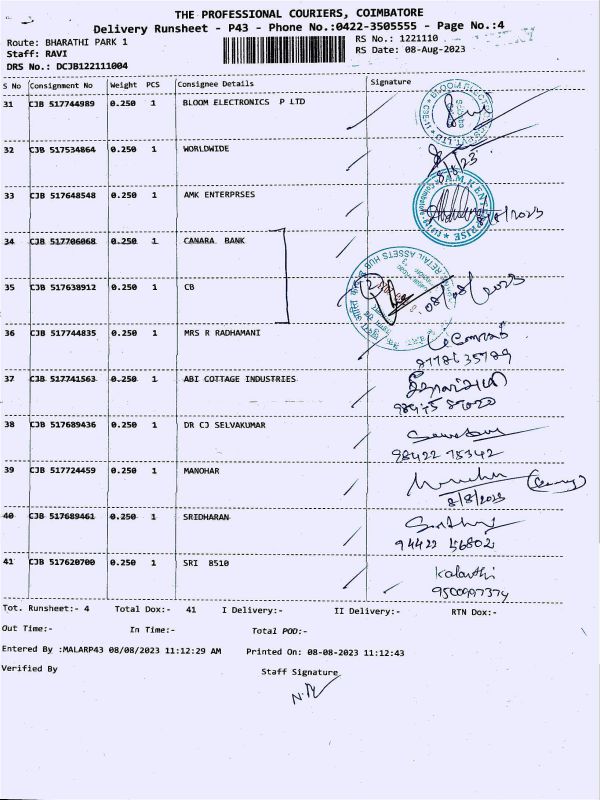 THE PROFESSIONAL COURIERS, COIMBATORE
Delivery Runsheet - P43 - Phone No.:0422-3505555 - Page No.:4
Route: BHARATHI PARK 1
RS No.: 1221110
Staff: RAVI
RS Date: 08-Aug-2023
DRS No.: DCJB122111004
S No Consignment No Weight PCS Consignee Details Signature
31 CJB 517744989 0.250 1 BLOOM ELECTRONICS P LTD
32 CJB 517534864 0.250 1 WORLDWIDE
8/8/23
33 CJB 517648548 0.250 1 AMK ENTERPRSES
8/8/2023
34 CJB 517706068 0.250 1 CANARA BANK
RETAIL ASSETS HUB
35 CJB 517638912 0.250 1 CB
08/08/2023
36 CJB 517744835 0.250 1 MRS R RADHAMANI
8778635789
37 CJB 517741563 0.250 1 ABI COTTAGE INDUSTRIES
38 CJB 517689436 0.250 1 DR CJ SELVAKUMAR
98422 78342
39 CJB 517724459 0.250 1 MANOHAR
8/8/2023
40 CJB 517689461 0.250 1 SRIDHARAN
94422 56802
41 CJB 517620700 0.250 1 SRI 8510
Kalanthi
9500997374
Tot. Runsheet:- 4 Total Dox:- 41 I Delivery:- II Delivery:- RTN Dox:-
Out Time:- In Time:- Total POD:-
Entered By :MALARP43 08/08/2023 11:12:29 AM Printed On: 08-08-2023 11:12:43
Verified By Staff Signature